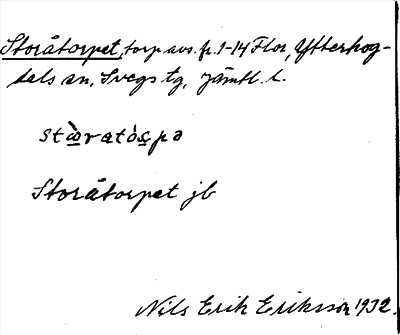 Storåtorpet, torp avs. fr. 1-14 Flor, Ytterhog-
dals sn, Svegs tg, Jämtl. l.
Storåtorpet jb
Nils Erik Eriksson 1932.